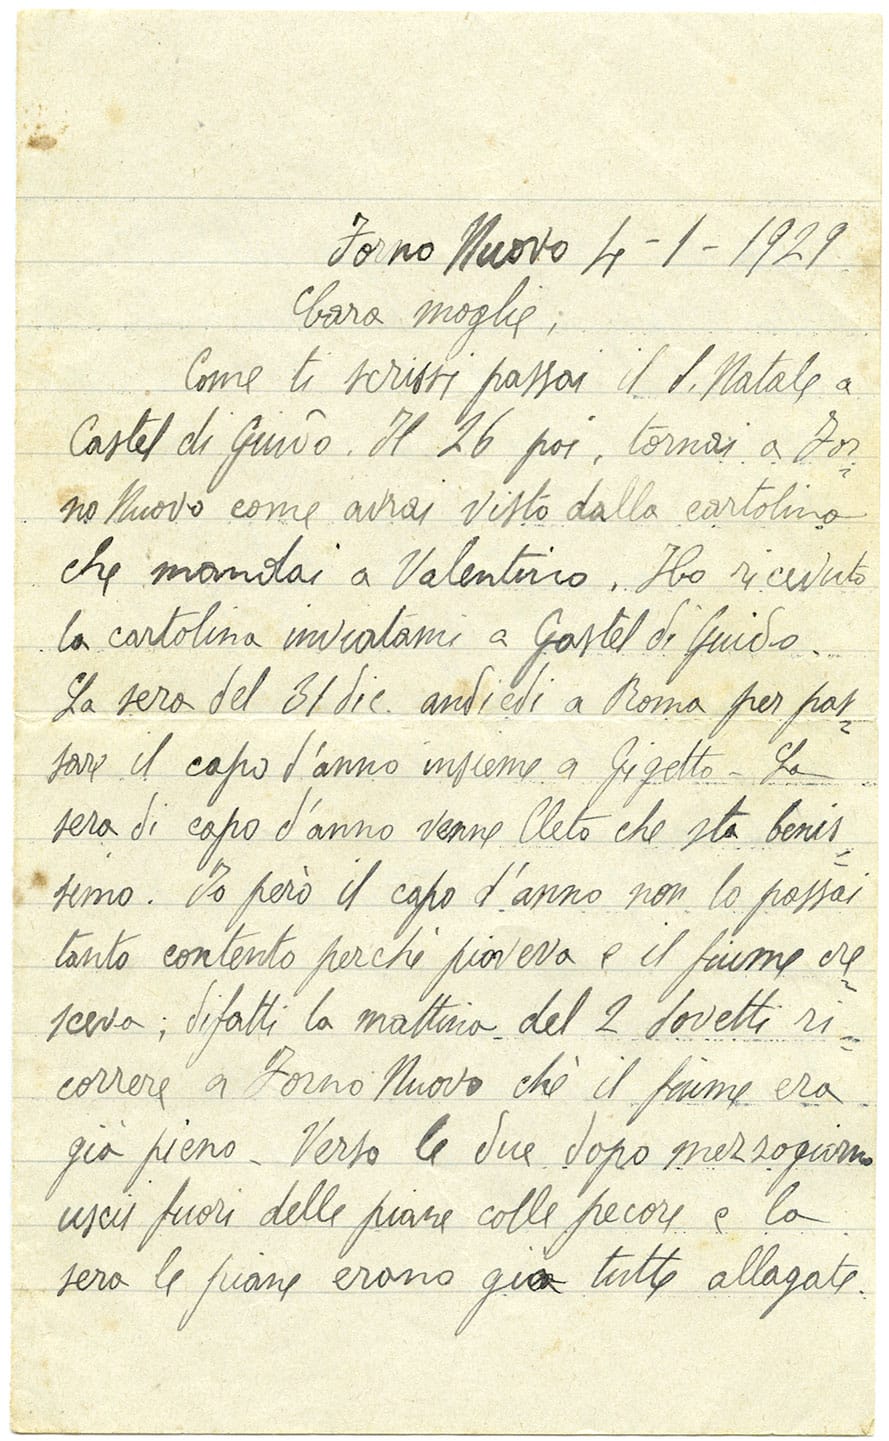 Forno Nuovo 4-1-1929
Cara moglie,
Come ti scrissi passai il d. Natale a
Castel di Guido. Il 26 poi, tornai a For=
no Nuovo come avrai visto dalla cartolina
che mandai a Valentino. Ho ricevuto
la cartolina inviatami a Castel di Guido.
La sera del 31 dic. andiedi a Roma per pas=
sare il capo d'anno insieme a Gigetto - La
sera di capo d'anno venne Cleto che sta benis=
simo. Io però il capo d'anno non lo passai
tanto contento perchè pioveva e il fiume cre=
sceva; difatti la mattina del 2 dovetti ri=
correre a Forno Nuovo chè il fiume era
già pieno - Verso le due dopo mezzogiorno
uscii fuori delle piane colle pecore e la
sera le piane erano già tutte allagate.